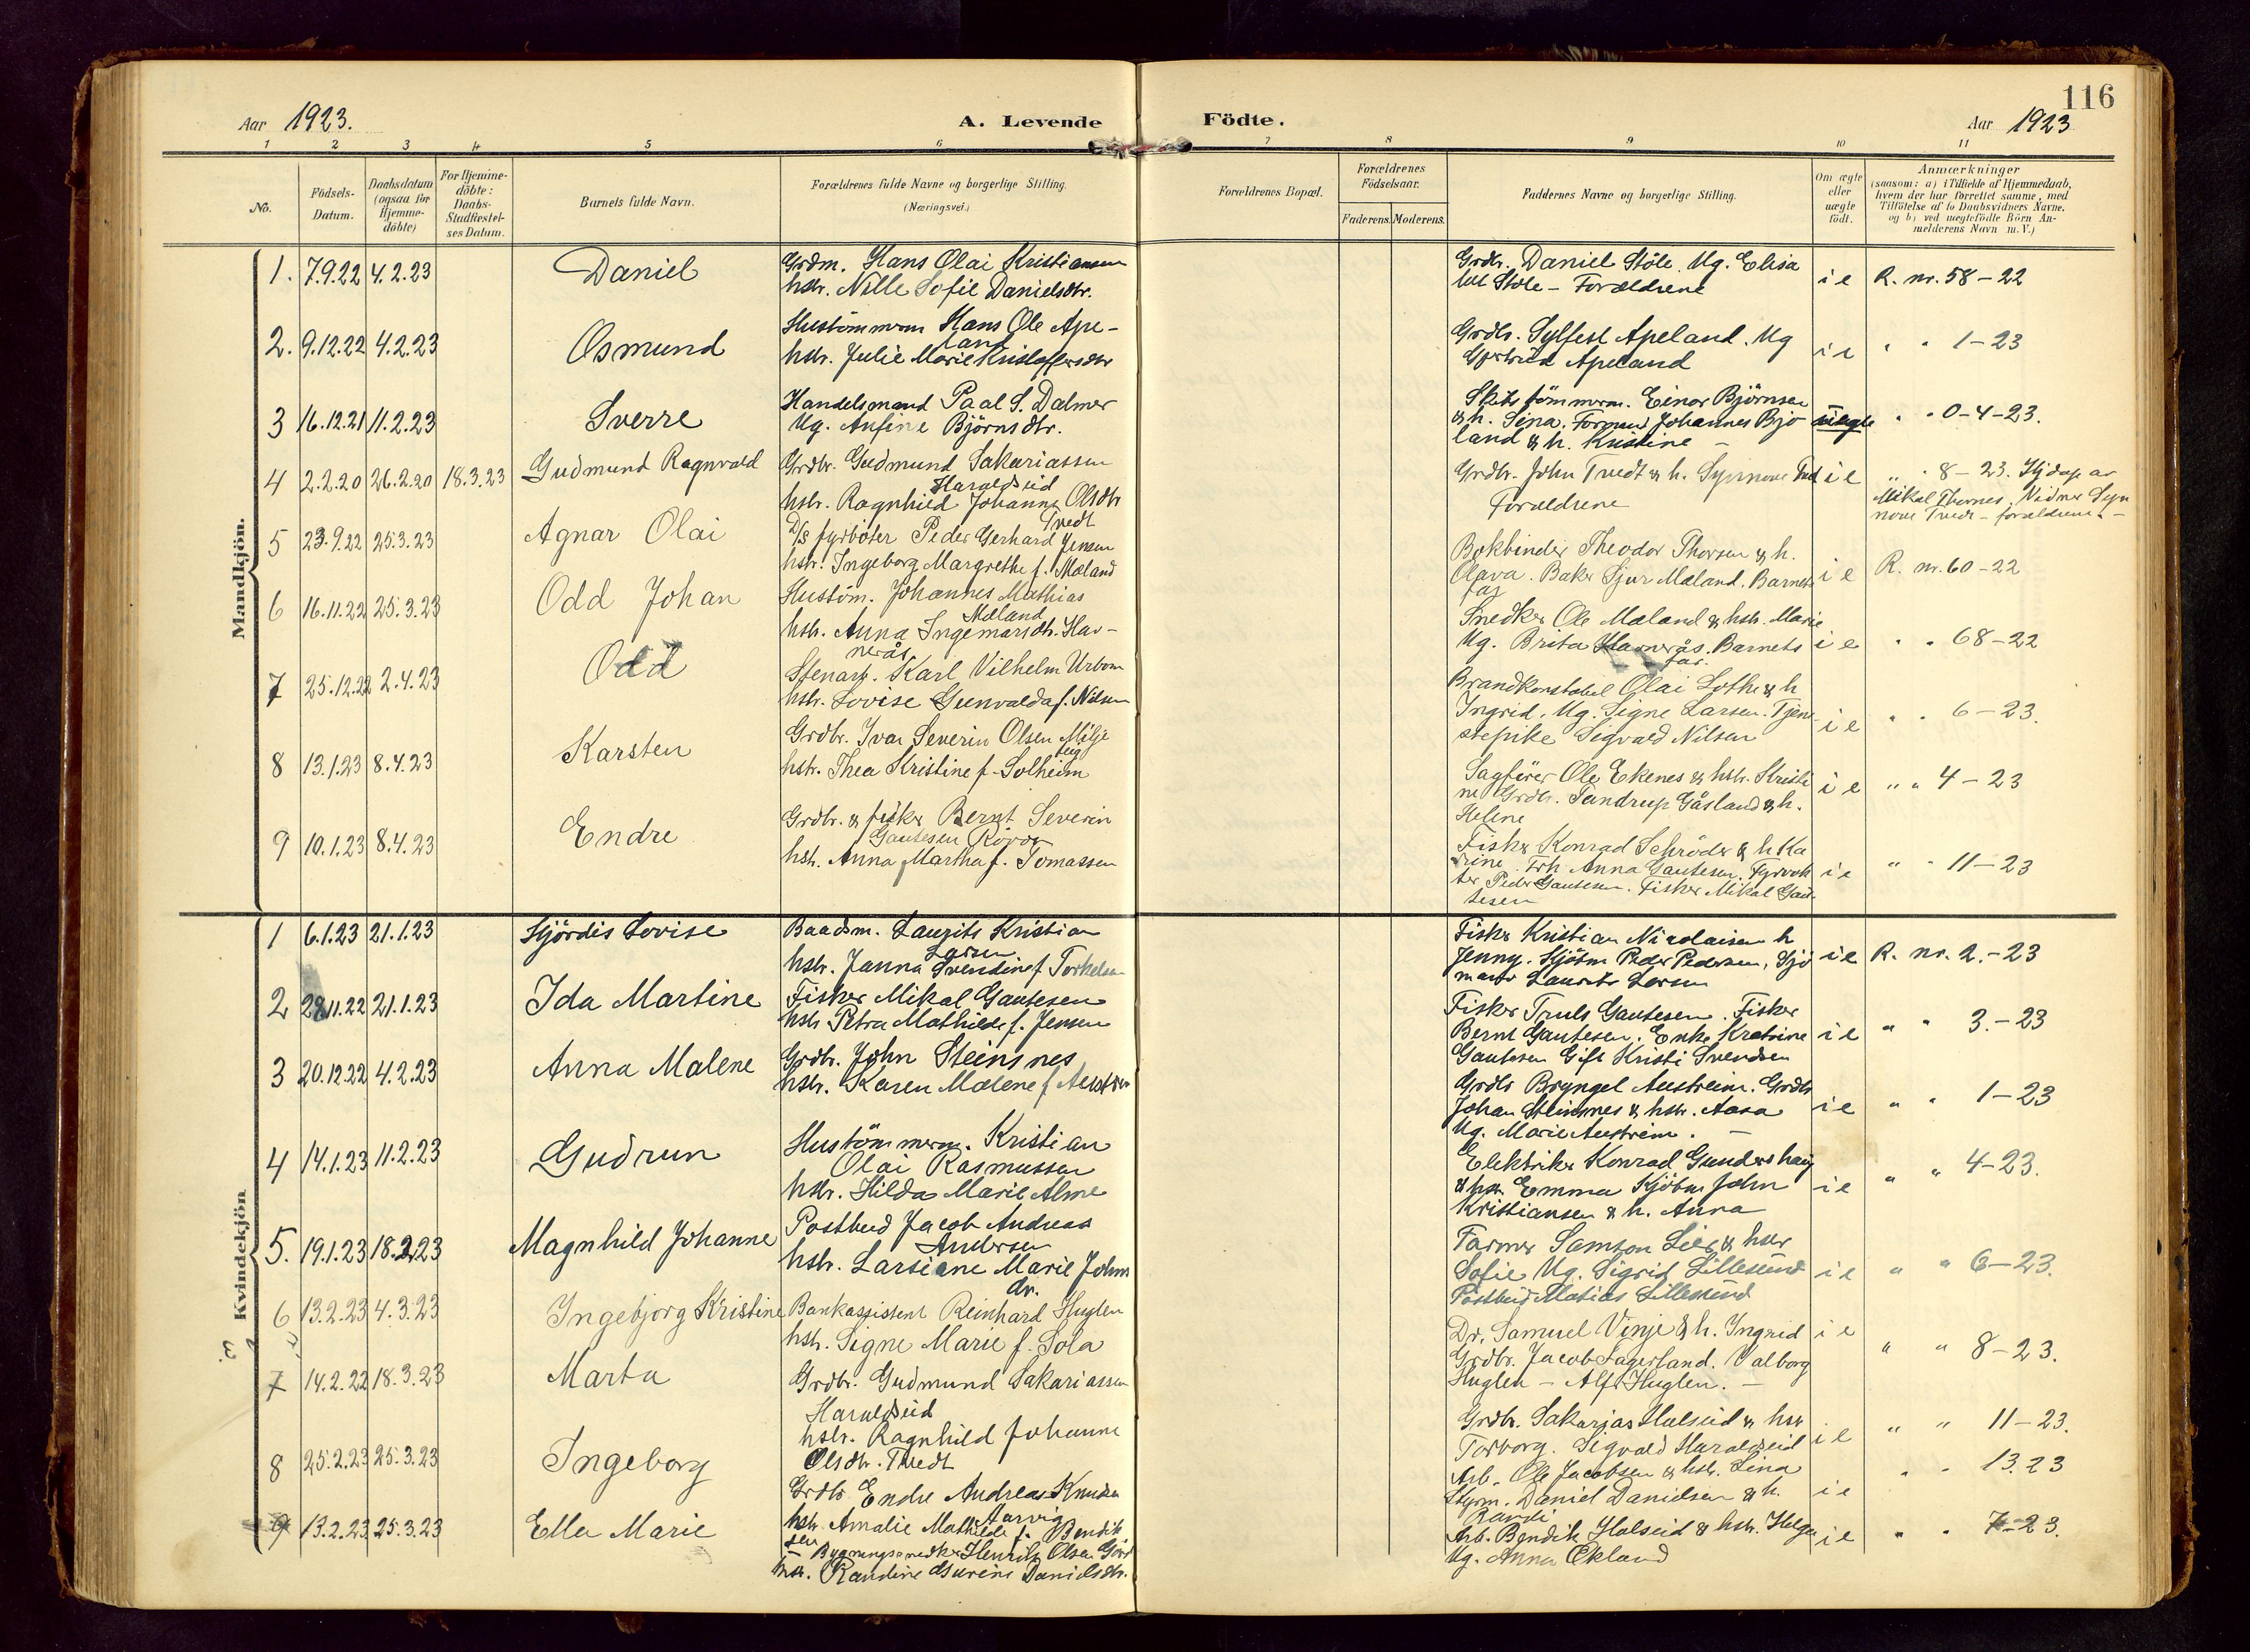 116
Aar 1923.
A. Levende Födte.
Aar 1923
1 2 3 4 5 6 7 8 9 10 11
No.
Födsels-Datum.
Daabsdatum (ogsaa for Hjemme-döbte)
For Hjemme-döbte: Daabs-Stadfæstel-ses Datum.
Barnets fulde Navn.
Forældrenes fulde Navne og borgerlige Stilling.
(Næringsvei.)
Forældrenes Bopæl.
Forældrenes Födselsaar.
Faderens. Moderens.
Faddernes Navne og borgerlige Stilling.
Om ægte eller uægte födt.
Anmærkninger
(saasom: a) i Tilfælde af Hjemmedaab, hvem der har forrettet samme, med Tilföielse af to Daabsvidners Navne, og b) ved uægtefödte Börn An-melderens Navn m. V.)
Mandkjön.
1. 7.9.22 4.2.23 Daniel
Grdm. Hans Olai Kristiansen
hstr. Nille Sofie Danielsdtr.
Grdbr. Daniel Stöle. Ug. Elisa
Stöle - Forældrene
i e R. nr. 58-22
2. 9.12.22 4.2.23 Osmund
Hustömmerm Hans Ole Ape-
land
hstr. Julie Marie Kristoffersdtr
Grdbr. Sylfest Apeland. Ug
Gjertrud Apeland
i e " " 1-23
3 16.12.21 11.2.23 Sverre
Handelsmand Paal S. Dalmer
Ug. Anfine Björnsdtr.
Skibstömmerm. Einar Björnsen
& h. Sina. Formand Johannes Bjo
land & h. Kristine -
uægte " " 0-4-23.
4 2.2.20 26.2.20 18.3.23 Gudmund Ragnvald
Grdbr. Gudmund Sakariassen
Haraldseid
hstr. Ragnhild Johanne Olsdtr
Tvedt
Grdbr. John Tvedt & h. Synnove Tved
Forældrene
i e " " 8-23. Hjdøp av
Mikal Thornes. Vidner Syn
nove Tvedt - forældrene. -
5 23.9.22 25.3.23 Agnar Olai
D/S fyrböter Peder Gerhard Jensen
hstr. Ingeborg Margrethe f. Mæland
Bokbinder Theodor Thorsen & h.
Olava. Baker Sjur Mæland. Barnets
far
i e R. nr. 60-22
6 16.11.22 25.3.23 Odd Johan
Hustöm. Johannes Mathias
Mæland
hstr. Anna Ingemarsdtr. Hav-
nerås
Snedker Ole Mæland & hstr. Marie
Ug. Brita Havnerås. Barnets
far.
i e " " 68-22
7 25.12.22 2.4.23 Odd
Stenarb. Karl Vilhelm Urbom
hstr. Lovise Gunvalda f. Nilsen
Brandkonstabel Olai Lothe & h
Ingrid. Ug. Signe Larsen. Tjene
stepike Sigvald Nilsen
i e " " 6-23.
8 13.1.23 8.4.23 Karsten
Grdbr. Ivar Severin Olsen Milje
teig
hstr. Thea Kristine f. Solheim
Sagförer Ole Ekenes & hstr. Kristi
ne Grdbr. Tandrup Gåsland & h.
Helene
i e " " 4-23
9 10.1.23 8.4.23 Endre
Grdbr. & fisker Bernt Severin
Gautesen Rövær
hstr. Anna Martha f. Tomassen
Fisker Konrad Schröder & h Ka
trine. Frk Anna Gautesen. Fyrvok
ter Peder Gautesen. Fisker Mikal Gau
tesen
i e " " 11-23
Kvindekjön
1 6.1.23 21.1.23 Hjördis Lovise
Baadsm. Laurits Kristian
Larsen
hstr. Janna Svendine f. Torkelsen
Fisker Kristian Nicolaisen h
Jenny. Sjöbm Peder Pedersen, Sjö
mand Laurits Larsen
i e R. nr. 2.-23
2 28.11.22 21.1.23 Ida Martine
Fisker Mikal Gautesen
hstr Petra Mathilde f. Jensen
Fisker Truls Gautesen. Fisker
Bernt Gautesen. Enke Katrine
Gautesen Gift Kristi Svendsen
i e " " 3.-23
3 20.12.22 4.2.23 Anna Malene
Grdbr. John Steinsnes
hstr. Karen Malene f Austreim
Grdbr Bryngel Austreim. Grdbr
Johan Steinsnes & hstr. Aasa
Ug. Marie Austreim. -
i e " " 1-23
4 14.1.23 11.2.23 Gudrun
Hustömmerm. Kristian
Olai Rasmussen
hstr. Hilda Marie Alme
Elektriker Konrad Gundershaug
& hstr. Emma Kjöbm John
Kristiansen & h. Anna
i e " " 4-23.
5. 19.1.23 18.2.23 Magnhild Johanne
Postbud Jacob Andreas
Andersen
hstr. Larsiane Marie Johns
dr.
Farmer Samson Lier & hstr
Sofie Ug. Sigrid Lillesund
Postbud Matias Lillesund
i e " " 6-23.
6 13.2.23 4.3.23 Ingebjorg Kristine
Bankassistent Reinhard Huglen
hstr. Signe Marie f. Sola
Dr. Samuel Vinje & h. Ingrid
Grdbr. Jacob Fagerland. Valborg
Huglen - Alf Huglen. -
i e " " 8-23.
7 14.2.22 18.3.23 Marta
Grdbr. Gudmund Sakariassen
Haraldseid
hstr. Ragnhild Johanne
Olsdtr. Tvedt
Grdbr. Sakarias Halseid & hstr
Torborg. Sigvald Haraldseid
i e " " 11-23.
8 25.2.23 25.3.23 Ingeborg
Grdbr Endre Andreas Knudsen
Aarvig
hstr Amalie Mathilde f. Bendik
sen
Arb. Ole Jacobsen & hstr. Lina
Styrm. Daniel Danielsen & h.
Randi
i e " " 13.23
9 13.2.23 25.3.23 Ella Marie
Bygningssnedker Henrik Olsen
hstr. Randine Danielsdtr.
Arb. Bendik Halseid & hstr. Helga
Ug. Anna Økland
i e " " 7-23.